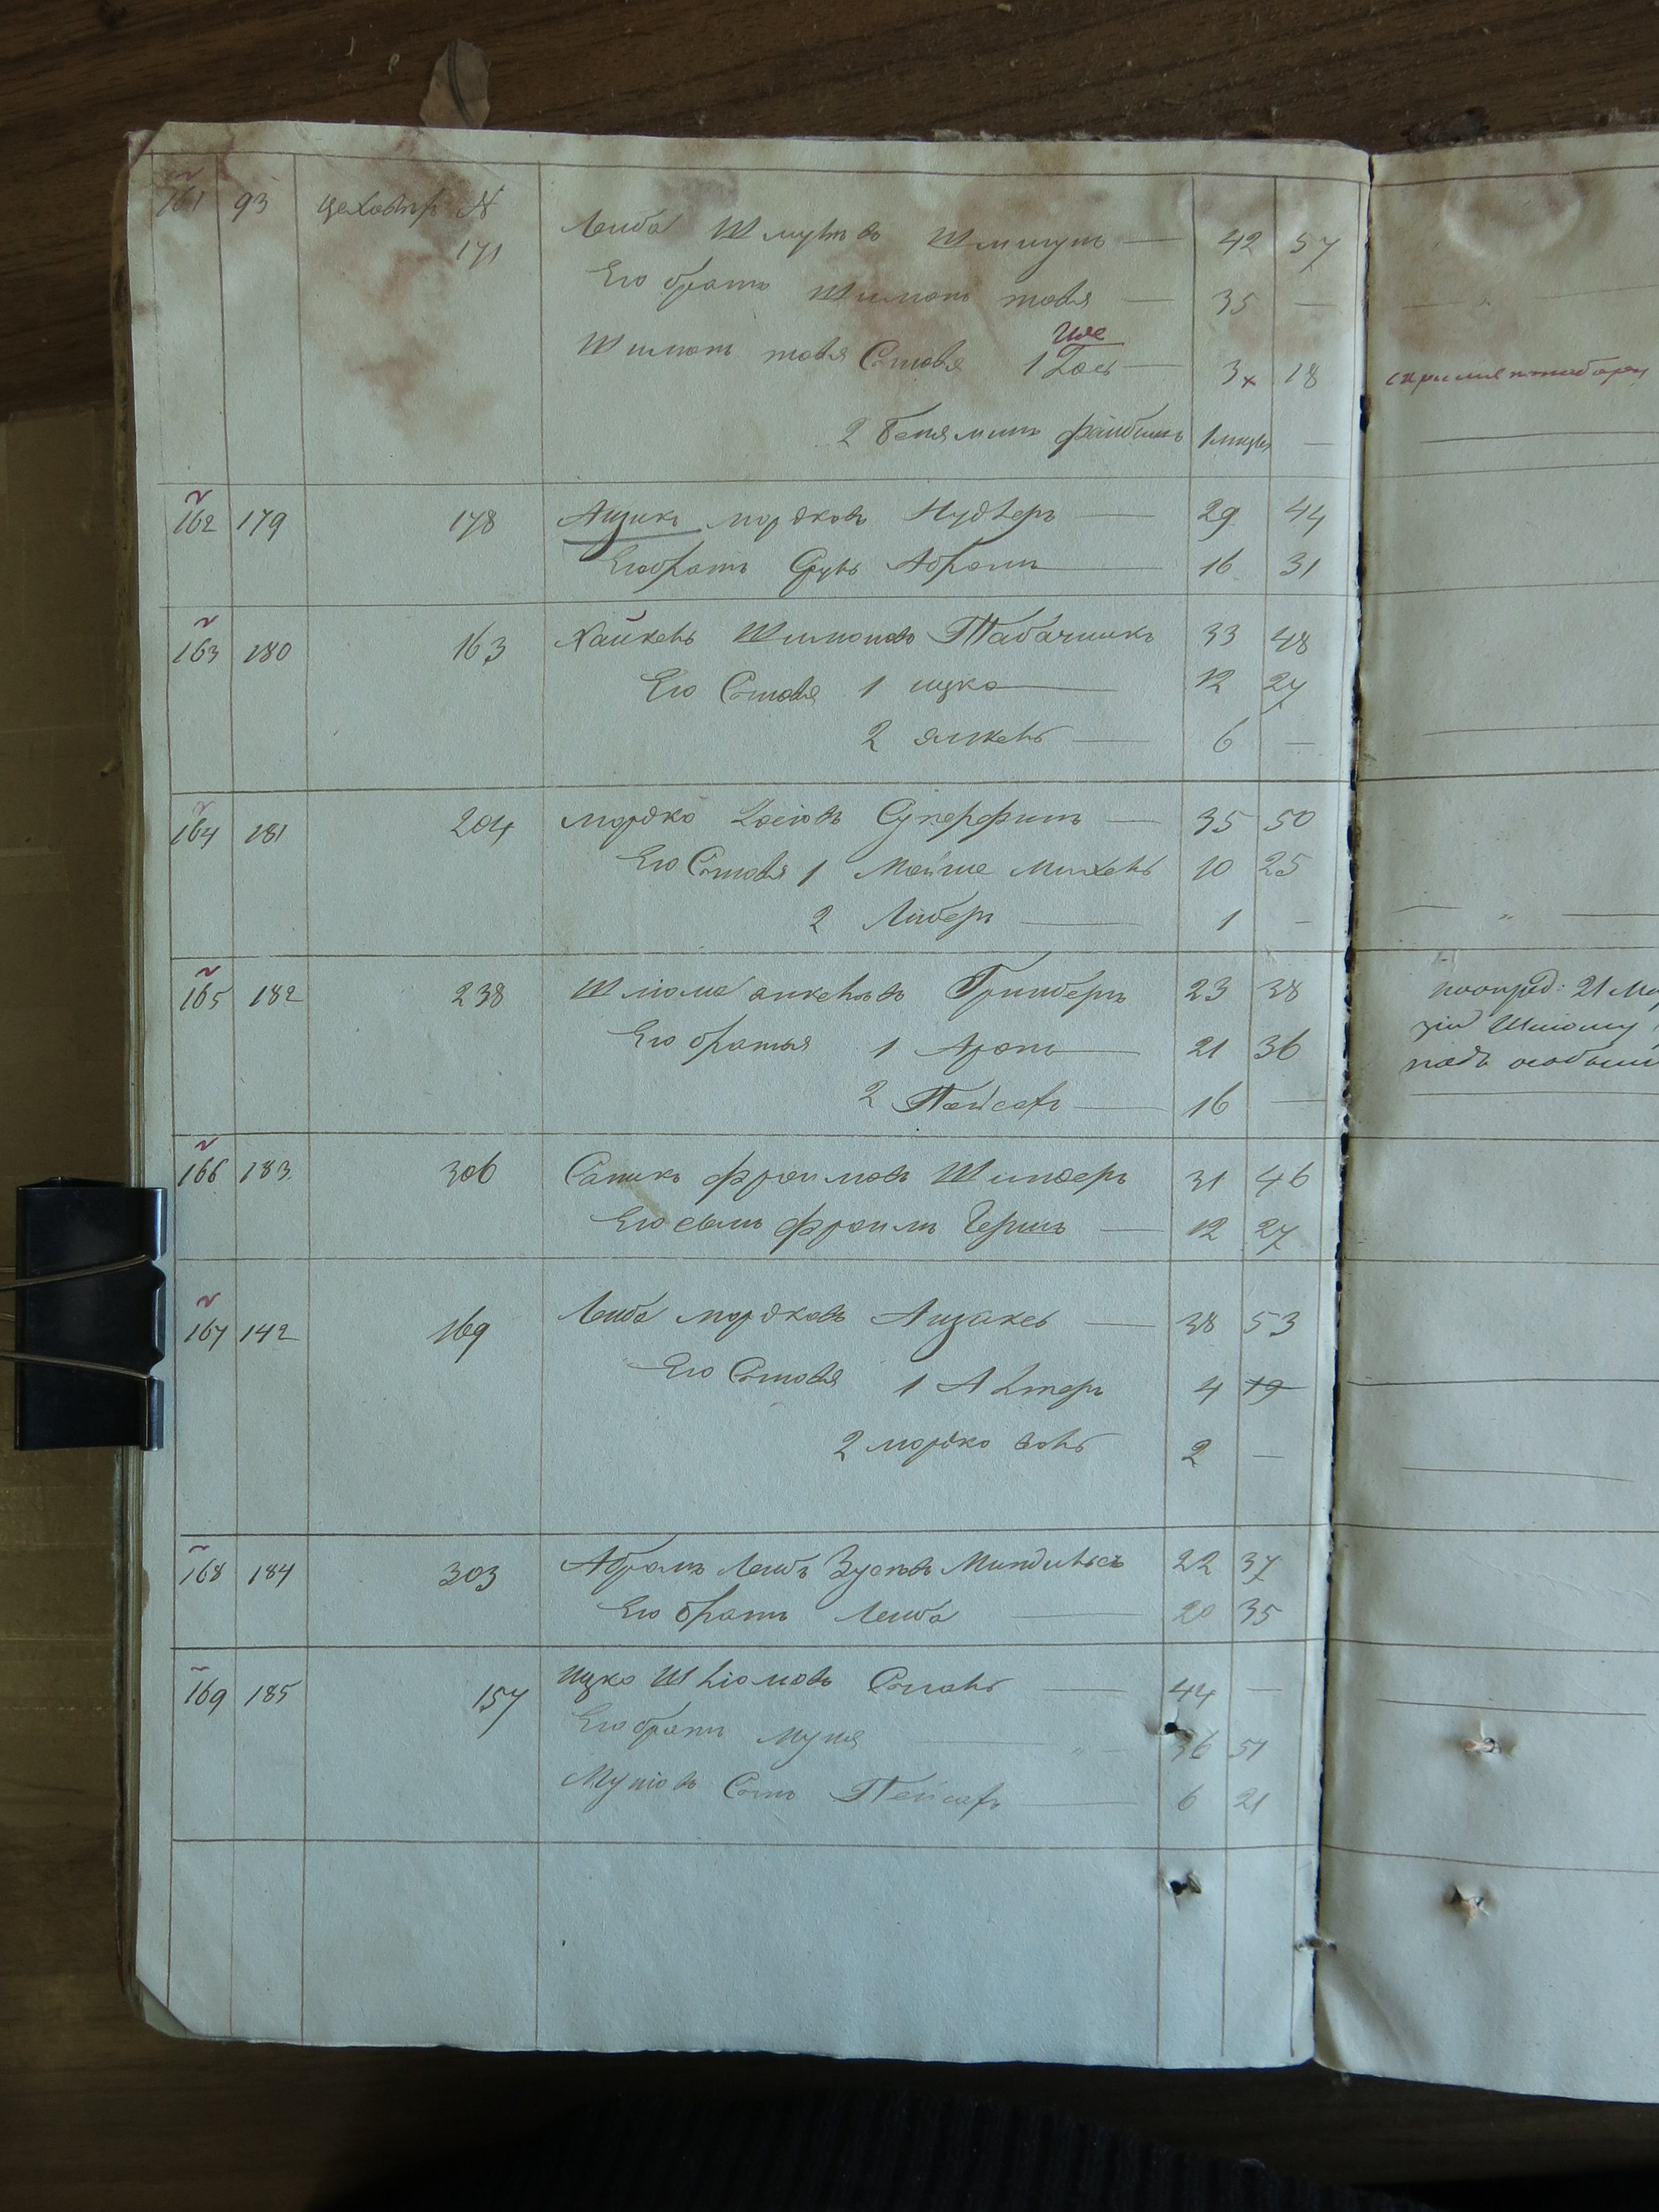 161 93 №
171 Лейба Шмулевъ — 42 57
Его братъ Шимонъ товія — 35 —
Иое
Шимонъ товія Сыновя 1 Іось — 3 18
2 Беняминъ файбишъ 1 —
162 179 178 Айзикъ мордковъ Нудлеръ — 29 44
Его братъ Сруль Абрамъ — 16 31
163 180 163 Хайкель Шимоновъ Табачникъ 33 48
Его Сыновя 1 ицко — 12 27
2 янкель — 6 —
164 181 204 мордко Іосіовъ Суперфинъ — 35 50
Его Сыновя 1 Мойше Михель 10 25
2 Либеръ — 1 —
165 182 238 Шлiома янкелевъ Гринберъ 23 38
Его братья 1 Аронъ — 21 36
2 Пейсахъ — 16 —
166 183 306 фроимовъ Шиндеръ 31 46
Его сынъ фроимъ Гершъ — 12 27
167 142 169 Лейба мордковъ Айзаксъ — 38 53
Его Сыновя 1 Алтеръ 4 19
2 мордко воль 2 —
168 184 303 Абрамъ Лейбъ Зусевъ 22 37
Его братъ Лейба — 20 35
169 185 157 ицко Шліомовъ — 44 —
Его братъ Муня — 36 51
Муніовъ Сынъ Пейсахъ — 6 21
21
Шліому
подъ